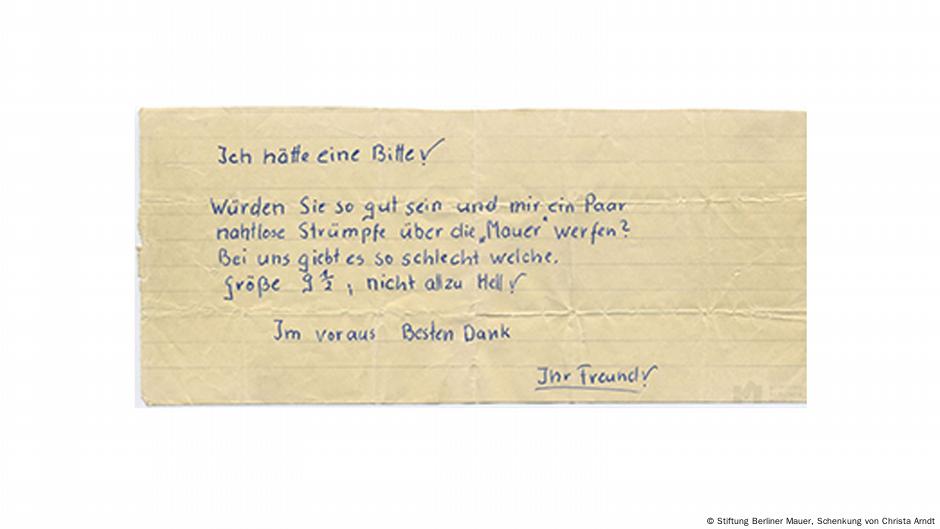 Ich hätte eine Bitte!
Würden Sie so gut sein und mir ein Paar
nahtlose Strümpfe über die „Mauer" werfen?
Bei uns giebt es so schlecht welche.
Größe 9½, nicht allzu Hell!
Im voraus Besten Dank
Ihr Freund!
© Stiftung Berliner Mauer, Schenkung von Christa Arndt